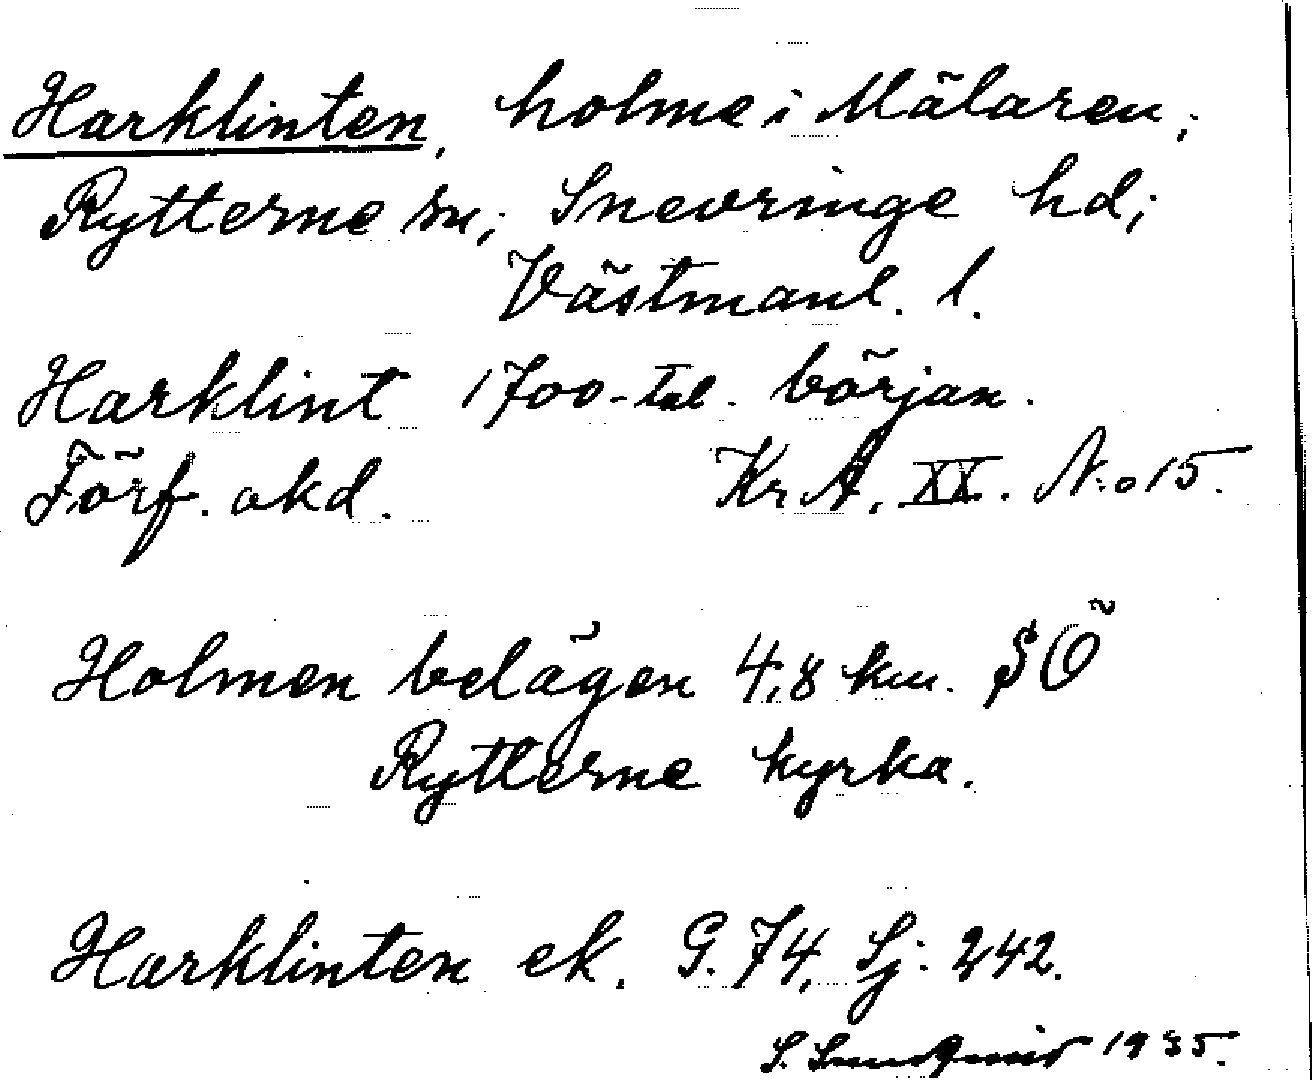 Harklinten, holme i Mälaren;
Rytterne sn; Snevringe hd;
Västmanl. l.
Harklint 1700-tal. början.
Förf. okd. Kr A. XX. N:o 15.
Holmen belägen 4,8 km. SÖ
Rytterne kyrka.
Harklinten ek. G. 74, Sj: 242.
S. 1935.